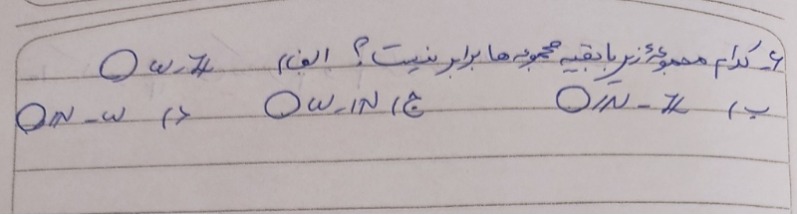 ۶- کدام مجموعهٔ زیر با بقیه مجموعه ها برابر نیست؟ الف) W-Z ○
ب) N-Z ○ ج) W-N ○ د) N-W ○